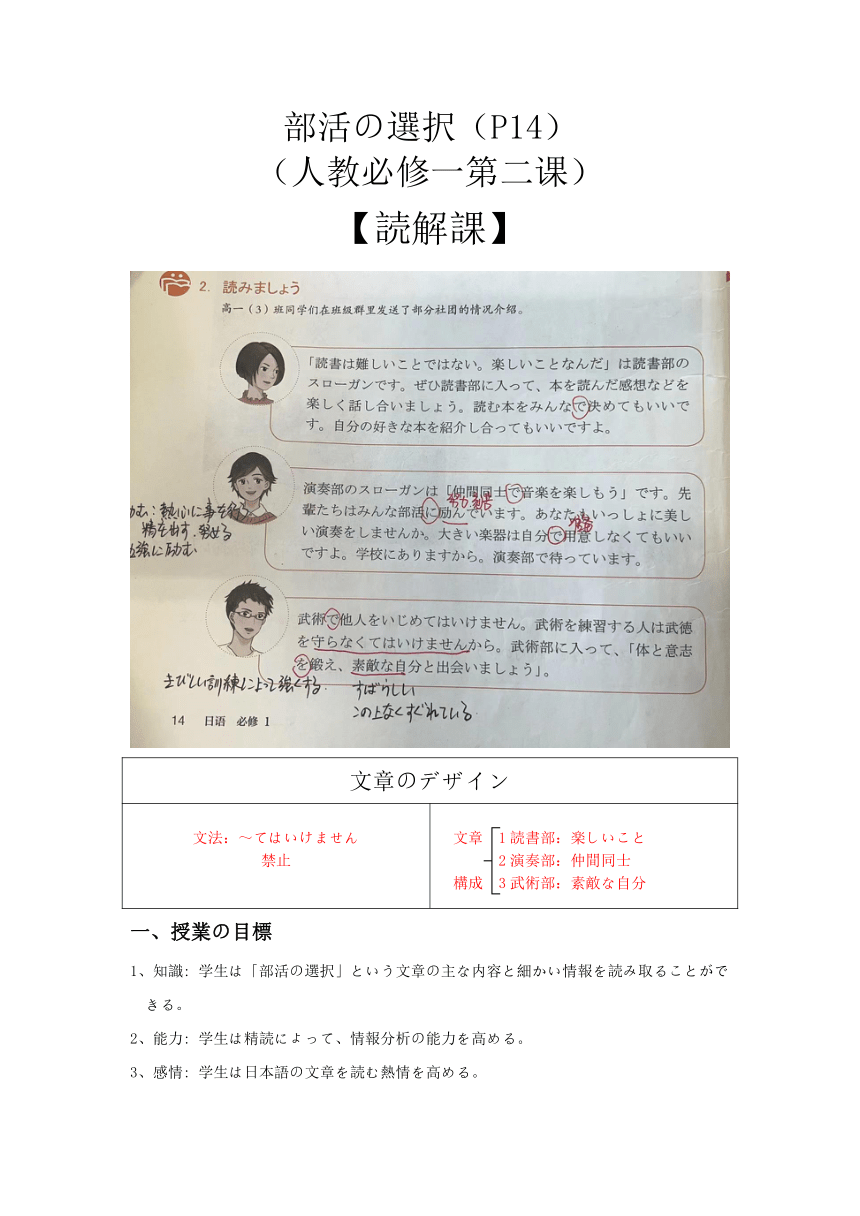 部活の選択（P14）
（人教必修一第二课）
【読解課】
2. 読みましょう
高一（3）班同学们在班级群里发送了部分社团的情况介绍。
「読書は難しいことではない。楽しいことなんだ」は読書部の
スローガンです。ぜひ読書部に入って、本を読んだ感想などを
楽しく話し合いましょう。読む本をみんなで決めてもいいで
す。自分の好きな本を紹介し合ってもいいですよ。
演奏部のスローガンは「仲間同士で音楽を楽しもう」です。先
輩たちはみんな部活に励んでいます。あなたもいっしょに美し
い演奏をしませんか。大きい楽器は自分で用意しなくてもいい
ですよ。学校にありますから。演奏部で待っています。
む：熱心に事を行
精を出す．努める
強に励む
武術で他人をいじめてはいけません。武術を練習する人は武徳
を守らなくてはいけませんから。武術部に入って、「体と意志
を鍛え、素敵な自分と出会いましょう」。
きびしい訓練によって強くする．
すばらしい
この上なくすぐれている．
14 日语 必修 1
文章のデザイン
文法：～てはいけません
禁止
文章
構成
1 読書部：楽しいこと
2 演奏部：仲間同士
3 武術部：素敵な自分
一、授業の目標
1、知識：学生は「部活の選択」という文章の主な内容と細かい情報を読み取ることがで
きる。
2、能力：学生は精読によって、情報分析の能力を高める。
3、感情：学生は日本語の文章を読む熱情を高める。